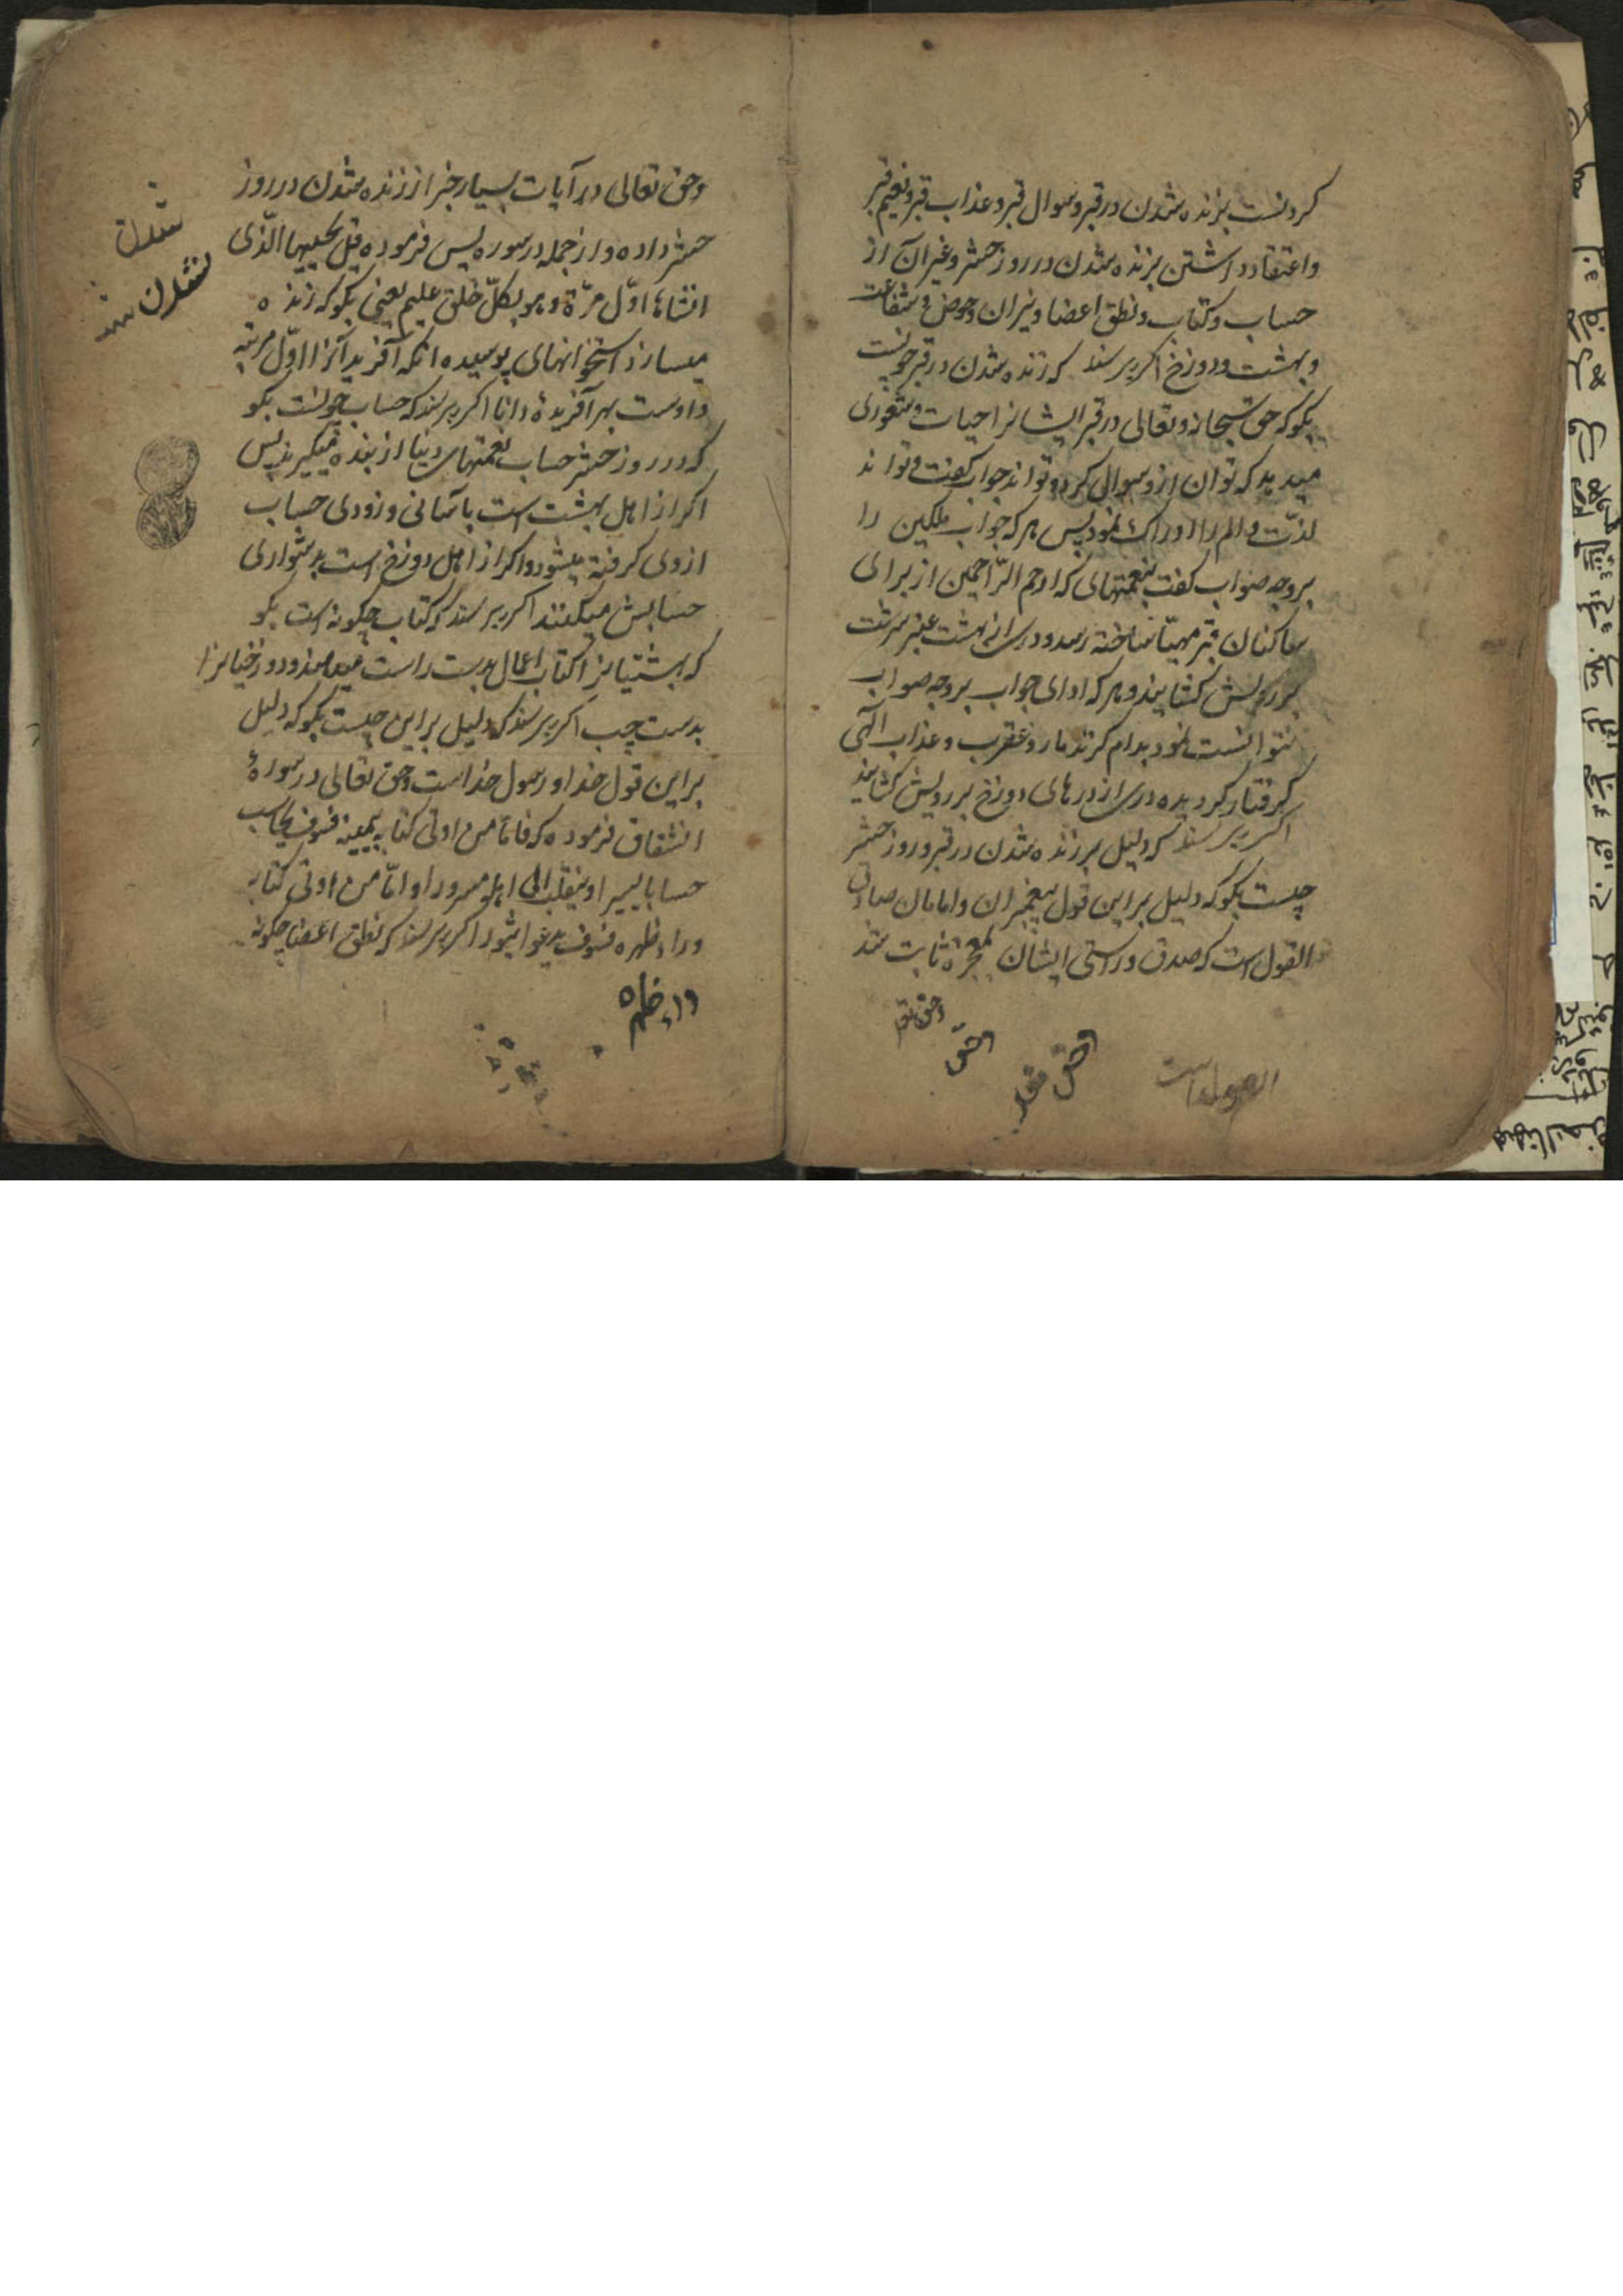 کردنست بزنده شدن در قبر و سوال قبر و عذاب قبر و نعیم قبر
و اعتقاد داشتن بزنده شدن در روز حشر و غیر آن از
حساب و کتاب و نطق اعضا و میزان و حوض و شفاعت
و بهشت و دوزخ اکر پرسند که زنده شدن در قبر چونست
بکو که حق سبحانه و تعالی در قبر ایشانرا حیات و شعوری
میدهد که توان ازو سوال کرد و تواند جواب کفت و تواند
لذّت و الم را ادراک نمود پس هر که جواب ملکین را
بروجه صواب کفت بنعمتهائی که ارحم الرّاحمین از برای
ساکنان قبر مهیّا ساخته رسد و دری از بهشت عنبر سرشت
بر رویش کشایند و هر که ادای جواب بروجه صواب
نتوانست نمود بدام کزند مار و عقرب و عذاب الهی
کرفتار کردیده دری از درهای دوزخ بر رویش کشایند
اکر پرسند که دلیل بر زنده شدن در قبر و روز حشر
چیست بکو که دلیل براین قول پیغمبران و امامان صادق
القول است که صدق و راستی ایشان بمعجزه ثابت شد
وحق تع
وحق
وحق تعا
القول است
و حق تعالی در آیات بسیار خبر از زنده شدن در روز
حشر داده و از جمله در سوره یس فرموده قل یحییها الّذی
انشاها اوّل مرّة و هو بکلّ خلق علیم یعنی بکو که زنده
میسازد استخوانهای پوسیده آنکه آفرید آنرا اوّل مرتبه
و اوست بهر آفریدهٔ دانا اکر پرسند که حساب چونست بکو
که در روز حشر حساب نعمتهای دنیا از بنده میکیرند پس
اکر از اهل بهشت است باسانی و زودی حساب
ازوی کرفته میشود و اکر از اهل دوزخ است بدشواری
حسابش میکنند اکر پرسند که کتاب چکونه است بکو
که بهشتیانرا کتاب اعمال بدست راست میدهند و دوزخیانرا
بدست چپ اکر پرسند که دلیل براین چیست بکو که دلیل
براین قول خدا و رسول خداست و حق تعالی در سورهٔ
انشقاق فرموده که فامّا من اوتی کتابه بیمینه فسوف یحاسب
حسابا یسیرا و ینقلب الی اهله مسرورا و امّا من اوتی کتابه
وراء ظهره فسوف یدعوا ثبورا اکر پرسند که نطق اعضا چکونه
وراء ظهره
شدن